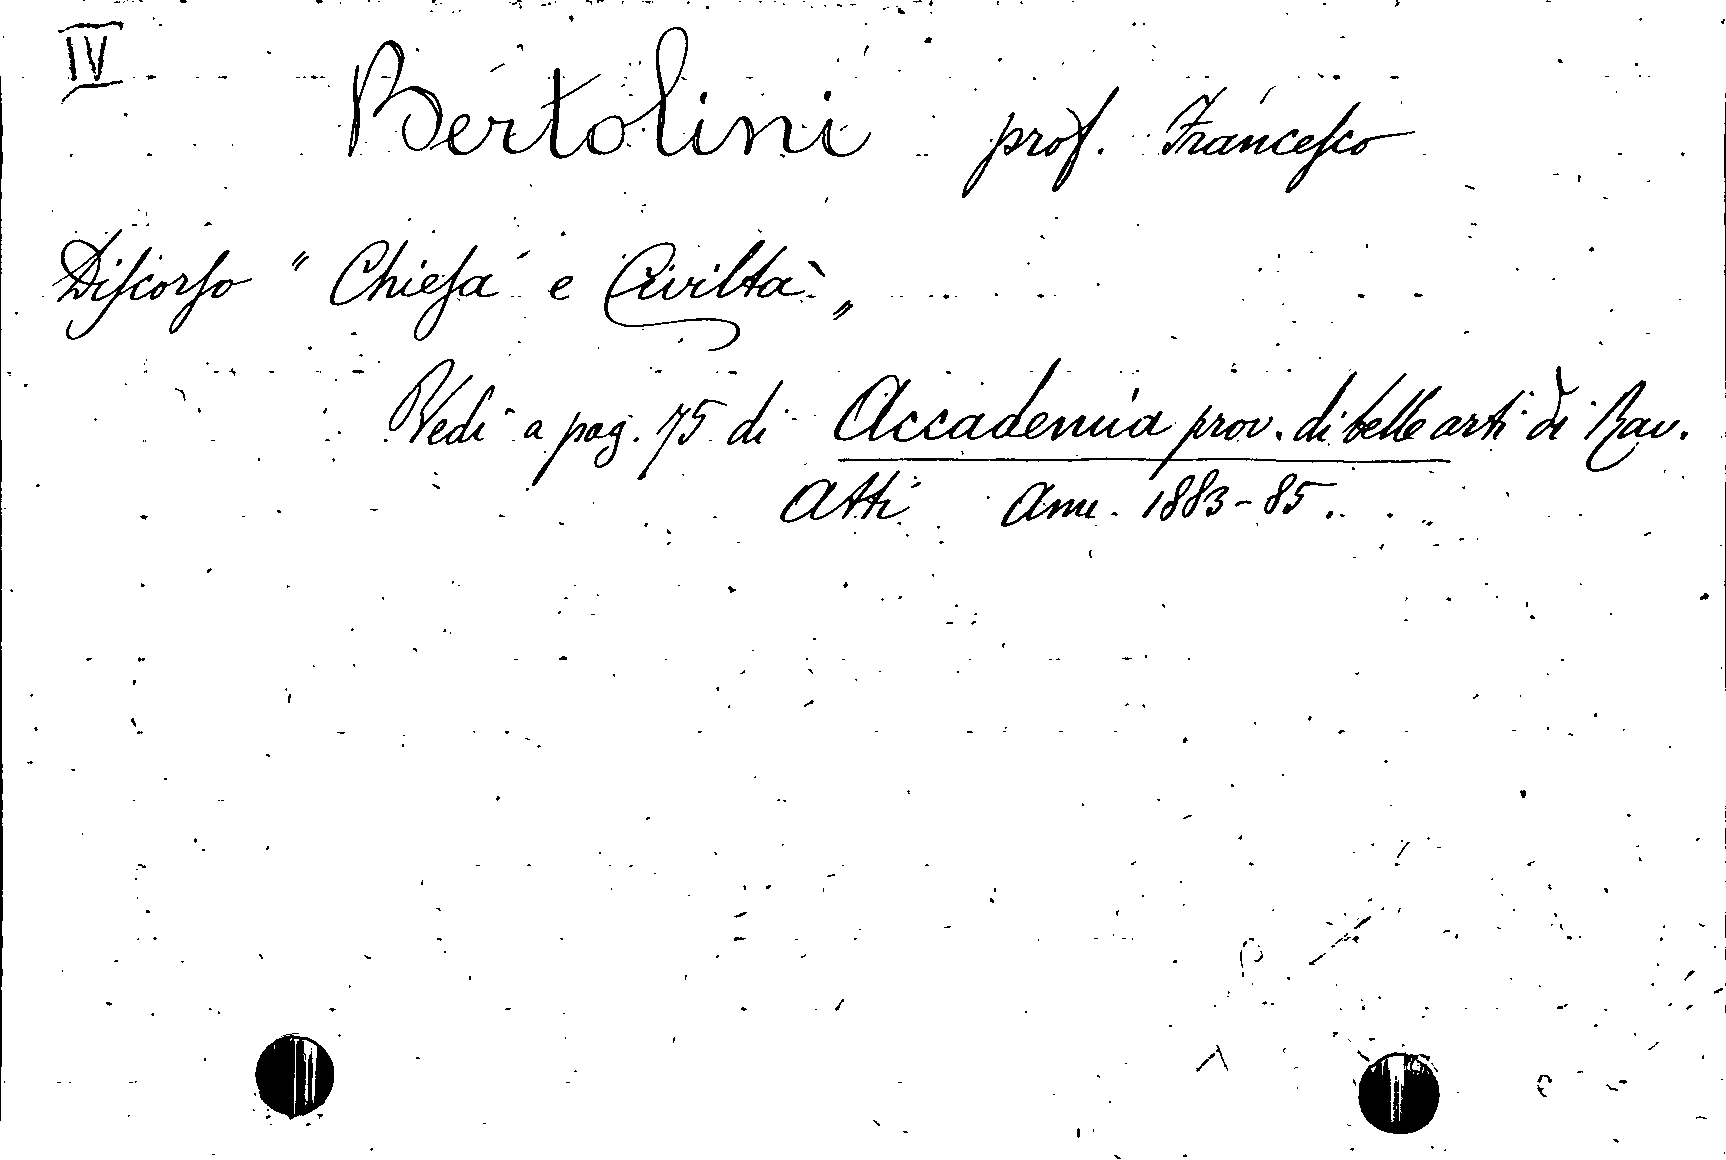 IV
Bertolini prof. Francesco
Discorso "Chiesa e Civiltà„
Vedi a pag. 75 di Accademia prov. di belle arti di Rav.
Atti Ann. 1883-85.